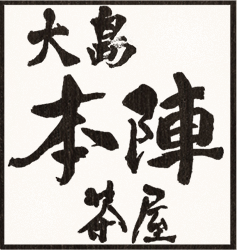 大島
本陣
茶屋